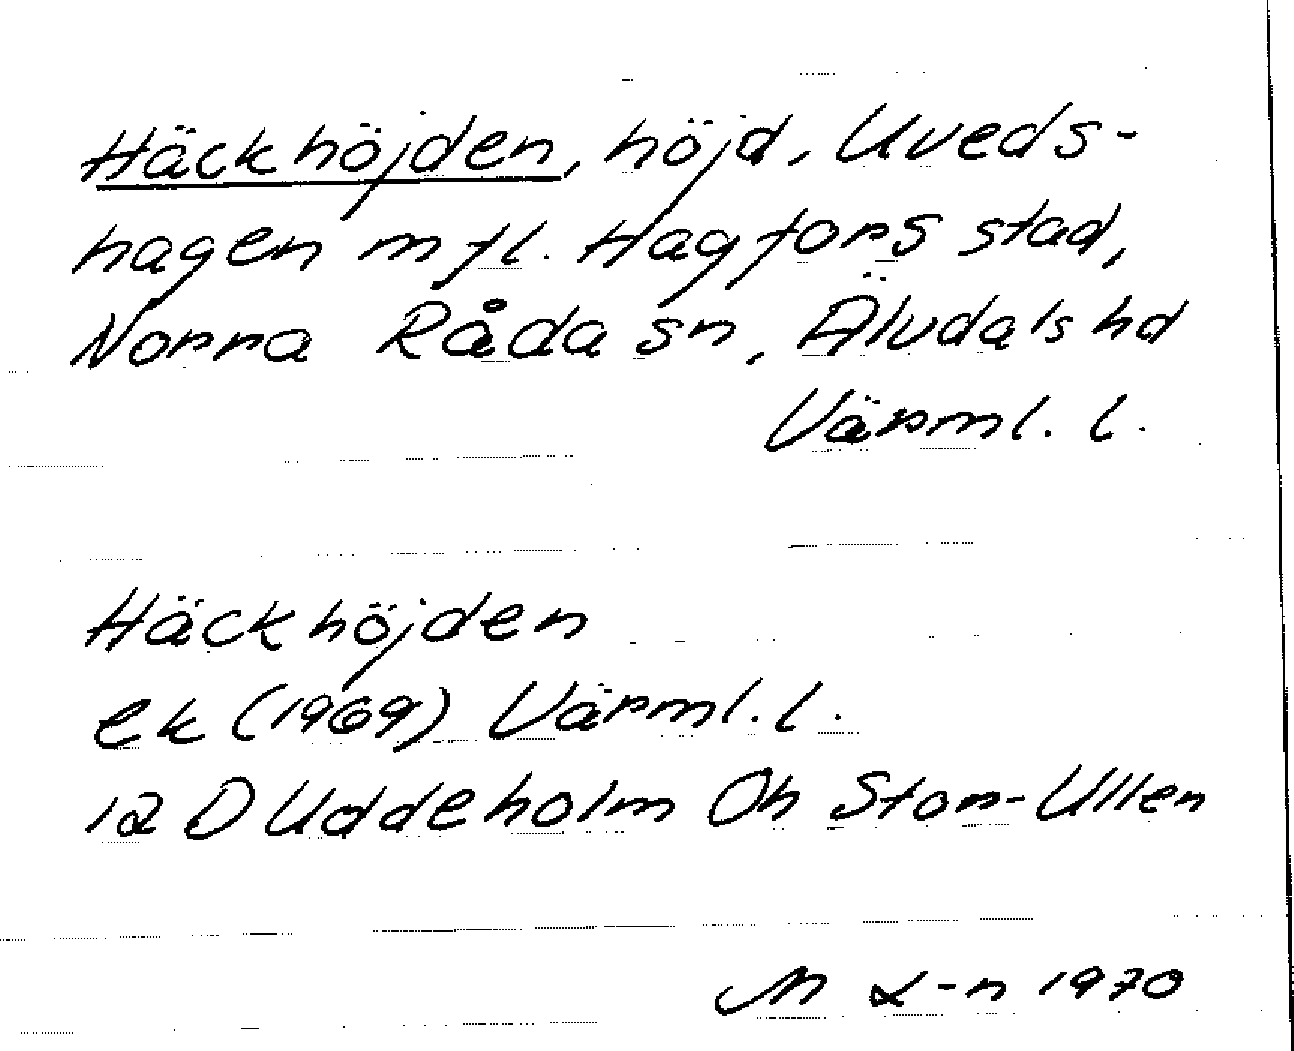 Häckhöjden, höjd, Uveds-
hagen m fl. Hagfors stad,
Norra Råda sn, Älvdals hd
Värml. l.
Häckhöjden
ek (1969) Värml. l.
12 D Uddeholm Öh Stor-Ullen
M L-n 1970